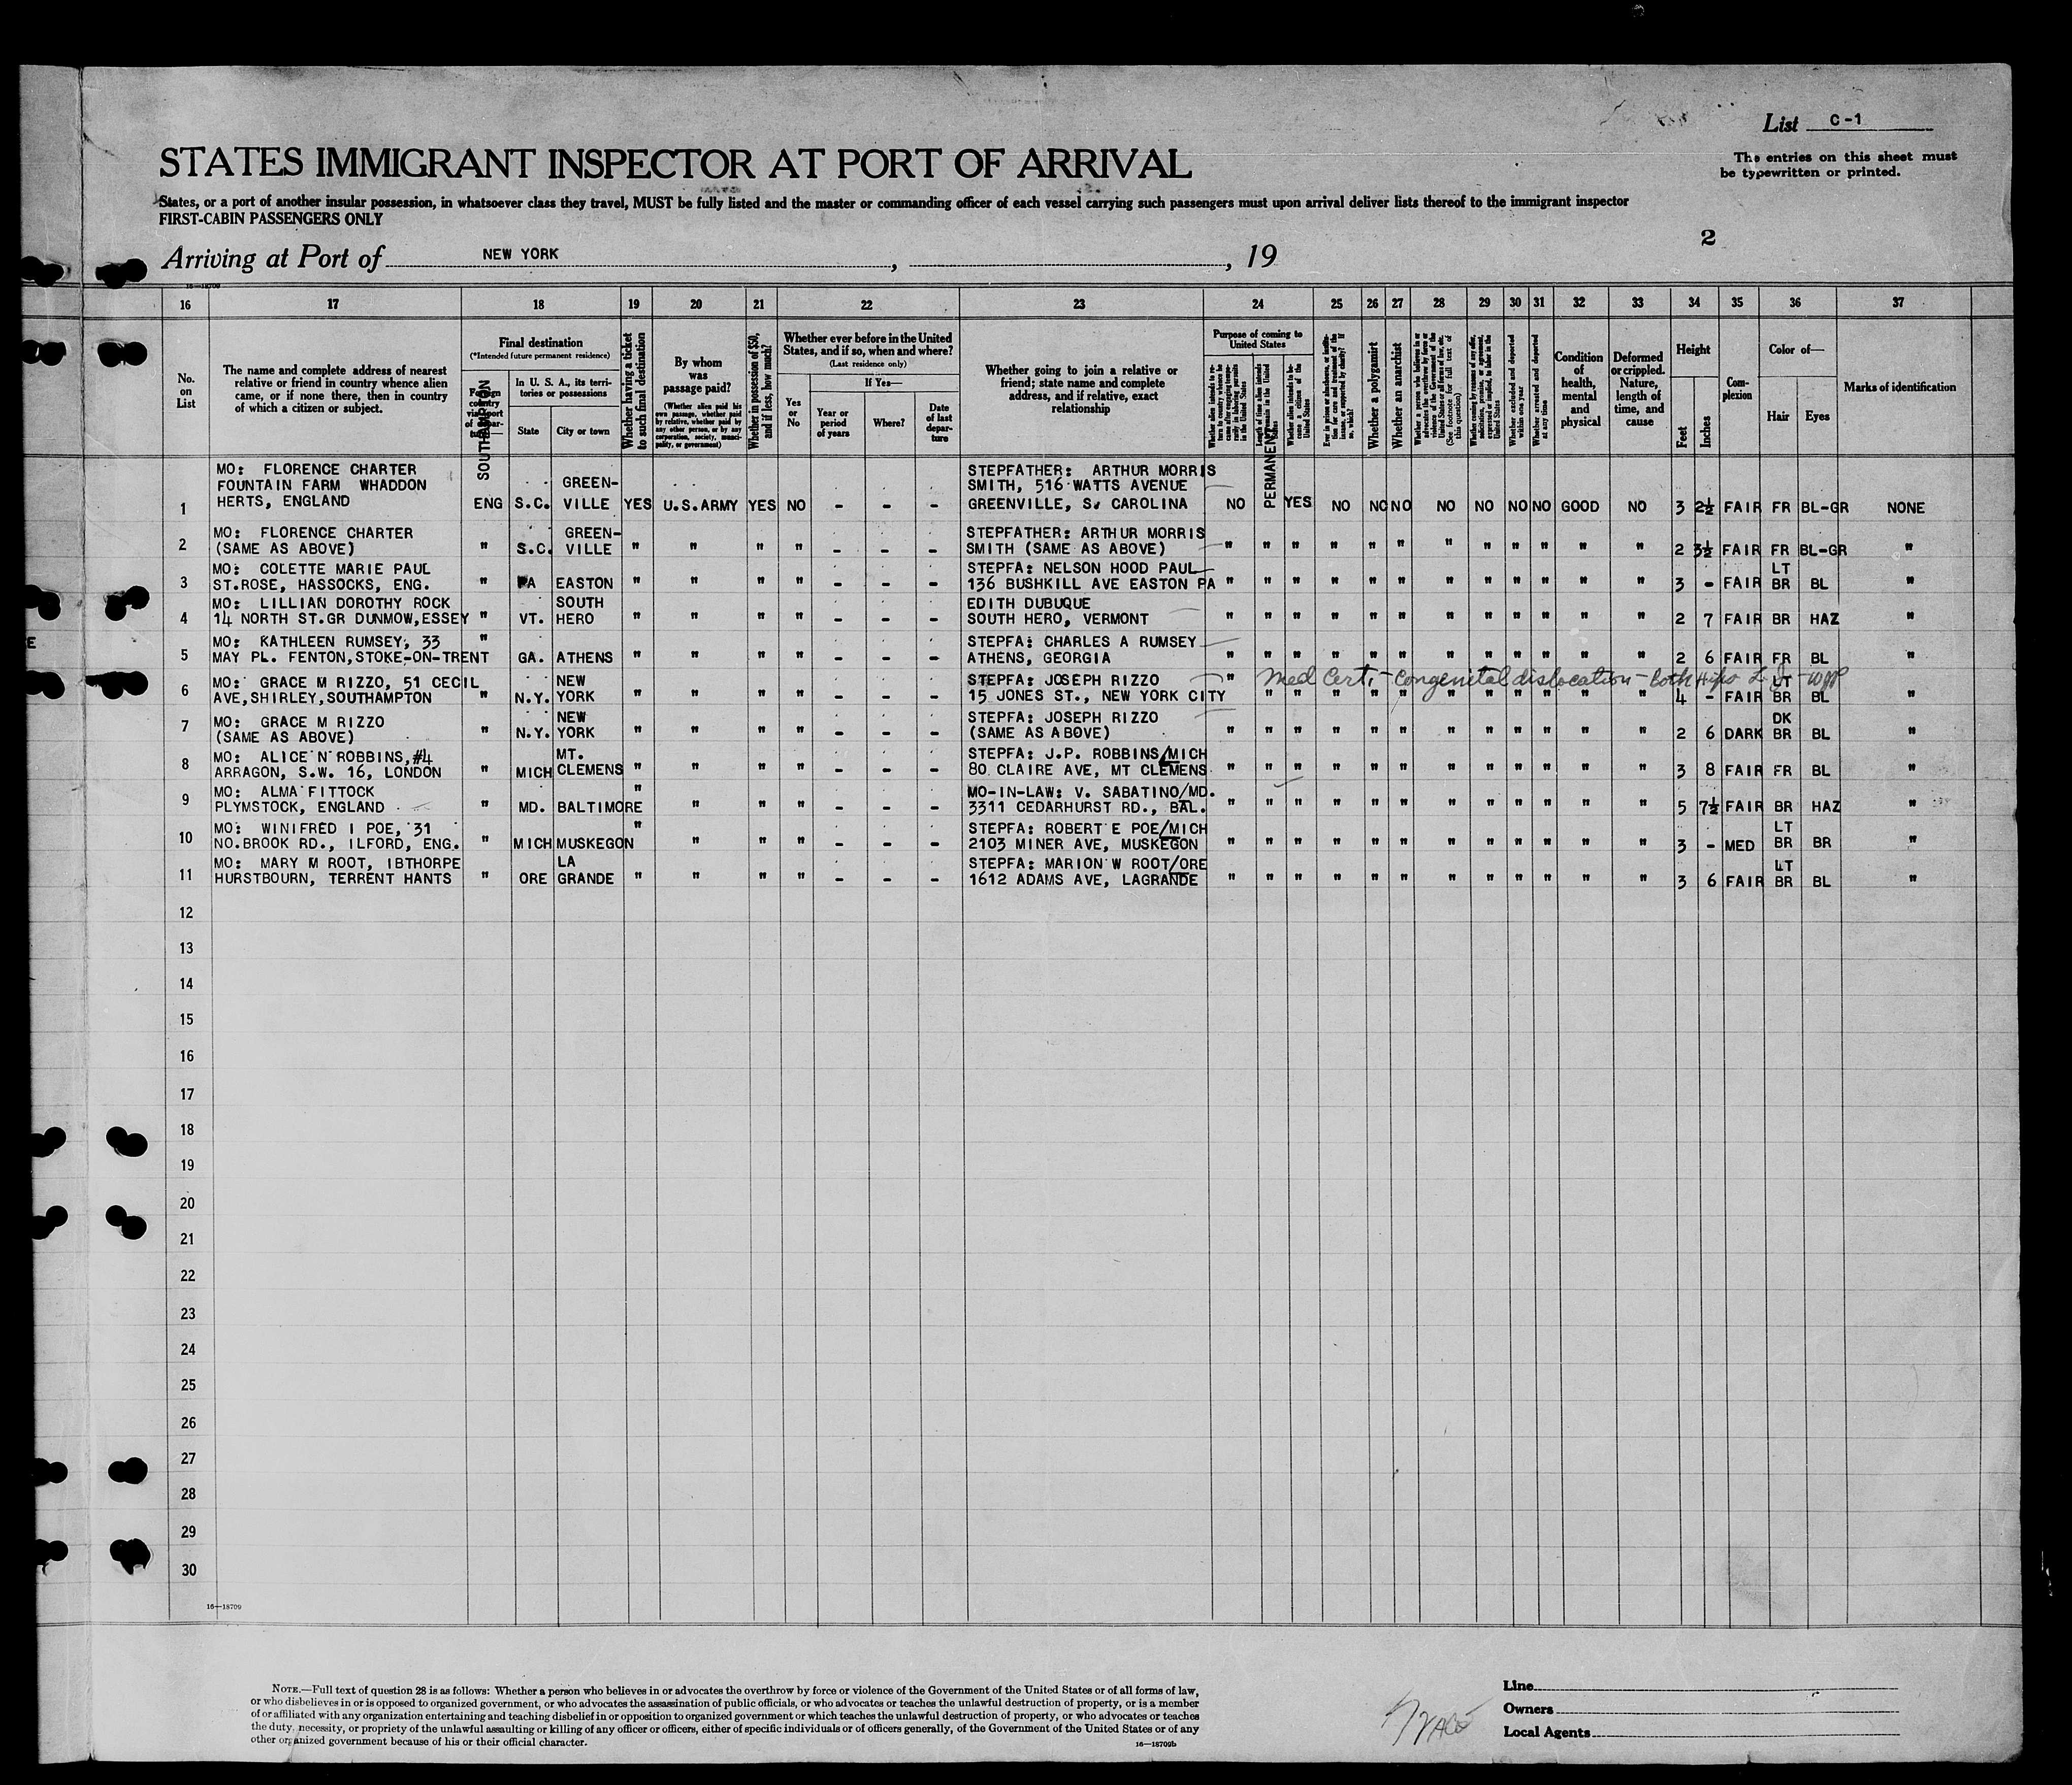 List C-1
The entries on this sheet must
be typewritten or printed.
STATES IMMIGRANT INSPECTOR AT PORT OF ARRIVAL
States, or a port of another insular possession, in whatsoever class they travel, MUST be fully listed and the master or commanding officer of each vessel carrying such passengers must upon arrival deliver lists thereof to the immigrant inspector
FIRST-CABIN PASSENGERS ONLY
2
Arriving at Port of NEW YORK , , 19
16—18709
16 17 18 19 20 21 22 23 24 25 26 27 28 29 30 31 32 33 34 35 36 37
No. on List
The name and complete address of nearest
relative or friend in country whence alien
came, or if none there, then in country
of which a citizen or subject.
Final destination
(*Intended future permanent residence)
SOUTHAMPTON
In U. S. A., its terri-
tories or possessions
State
City or town
Whether having a ticket
to such final destination
By whom
was
passage paid?
(Whether alien paid his
own passage, whether paid
by relative, whether paid by
any other person, or by any
corporation, society, munici-
pality, or government)
Whether in possession of $50,
and if less, how much?
Whether ever before in the United
States, and if so, when and where?
(Last residence only)
Yes
or
No
If Yes—
Year or
period
of years
Where?
Date
of last
depar-
ture
Whether going to join a relative or
friend; state name and complete
address, and if relative, exact
relationship
Purpose of coming to
United States
PERMANENT
Whether a polygamist
Whether an anarchist
Whether excluded and deported
within one year
Whether arrested and deported
at any time
Condition
of
health,
mental
and
physical
Deformed
or crippled.
Nature,
length of
time, and
cause
Height
Feet
Inches
Com-
plexion
Color of—
Hair
Eyes
Marks of identification
MO: FLORENCE CHARTER STEPFATHER: ARTHUR MORRIS
FOUNTAIN FARM WHADDON GREEN- SMITH, 516 WATTS AVENUE
1 HERTS, ENGLAND ENG S.C. VILLE YES U.S.ARMY YES NO - - - GREENVILLE, S. CAROLINA NO YES NO NO NO NO NO NO NO GOOD NO 3 2½ FAIR FR BL-GR NONE
MO: FLORENCE CHARTER GREEN- STEPFATHER: ARTHUR MORRIS
2 (SAME AS ABOVE) " S.C. VILLE " " " " - - - SMITH (SAME AS ABOVE) " " " " " " " " " " " " 2 3½ FAIR FR BL-GR "
MO: COLETTE MARIE PAUL STEPFA: NELSON HOOD PAUL LT
3 ST.ROSE, HASSOCKS, ENG. " PA EASTON " " " " - - - 136 BUSHKILL AVE EASTON PA " " " " " " " " " " " " 3 - FAIR BR BL "
MO: LILLIAN DOROTHY ROCK SOUTH EDITH DUBUQUE
4 14 NORTH ST.GR DUNMOW,ESSEY " VT. HERO " " " " - - - SOUTH HERO, VERMONT " " " " " " " " " " " " 2 7 FAIR BR HAZ "
MO: KATHLEEN RUMSEY, 33 " STEPFA: CHARLES A RUMSEY
5 MAY PL. FENTON,STOKE-ON-TRENT GA. ATHENS " " " " - - - ATHENS, GEORGIA " " " " " " " " " " " " 2 6 FAIR FR BL "
MO: GRACE M RIZZO, 51 CECIL NEW STEPFA: JOSEPH RIZZO " Med Cert. - Congenital dislocation - both hips LT
6 AVE,SHIRLEY,SOUTHAMPTON " N.Y. YORK " " " " - - - 15 JONES ST., NEW YORK CITY " " " " " " " " " " " 4 - FAIR BR BL "
MO: GRACE M RIZZO NEW STEPFA: JOSEPH RIZZO DK
7 (SAME AS ABOVE) " N.Y. YORK " " " " - - - (SAME AS ABOVE) " " " " " " " " " " " " 2 6 DARK BR BL "
MO: ALICE N ROBBINS,#4 MT. STEPFA: J.P. ROBBINS/MICH
8 ARRAGON, S.W. 16, LONDON " MICH CLEMENS " " " " - - - 80 CLAIRE AVE, MT CLEMENS " " " " " " " " " " " " 3 8 FAIR FR BL "
MO: ALMA FITTOCK " MO-IN-LAW: V. SABATINO/MD.
9 PLYMSTOCK, ENGLAND " MD. BALTIMORE " " " - - - 3311 CEDARHURST RD., BAL. " " " " " " " " " " " " 5 7½ FAIR BR HAZ "
MO: WINIFRED I POE, 31 " STEPFA: ROBERT E POE/MICH LT
10 NO.BROOK RD., ILFORD, ENG. " MICH MUSKEGON " " " - - - 2103 MINER AVE, MUSKEGON " " " " " " " " " " " " 3 - MED BR BR "
MO: MARY M ROOT, IBTHORPE LA STEPFA: MARION W ROOT/ORE LT
11 HURSTBOURN, TERRENT HANTS " ORE GRANDE " " " " - - - 1612 ADAMS AVE, LAGRANDE " " " " " " " " " " " " 3 6 FAIR BR BL "
12
13
14
15
16
17
18
19
20
21
22
23
24
25
26
27
28
29
30
16—18709
NOTE.—Full text of question 28 is as follows: Whether a person who believes in or advocates the overthrow by force or violence of the Government of the United States or of all forms of law,
or who disbelieves in or is opposed to organized government, or who advocates the assassination of public officials, or who advocates or teaches the unlawful destruction of property, or is a member
of or affiliated with any organization entertaining and teaching disbelief in or opposition to organized government or which teaches the unlawful destruction of property, or who advocates or teaches
the duty, necessity, or propriety of the unlawful assaulting or killing of any officer or officers, either of specific individuals or of officers generally, of the Government of the United States or of any
other organized government because of his or their official character.
16—18709b
Line
Owners
Local Agents